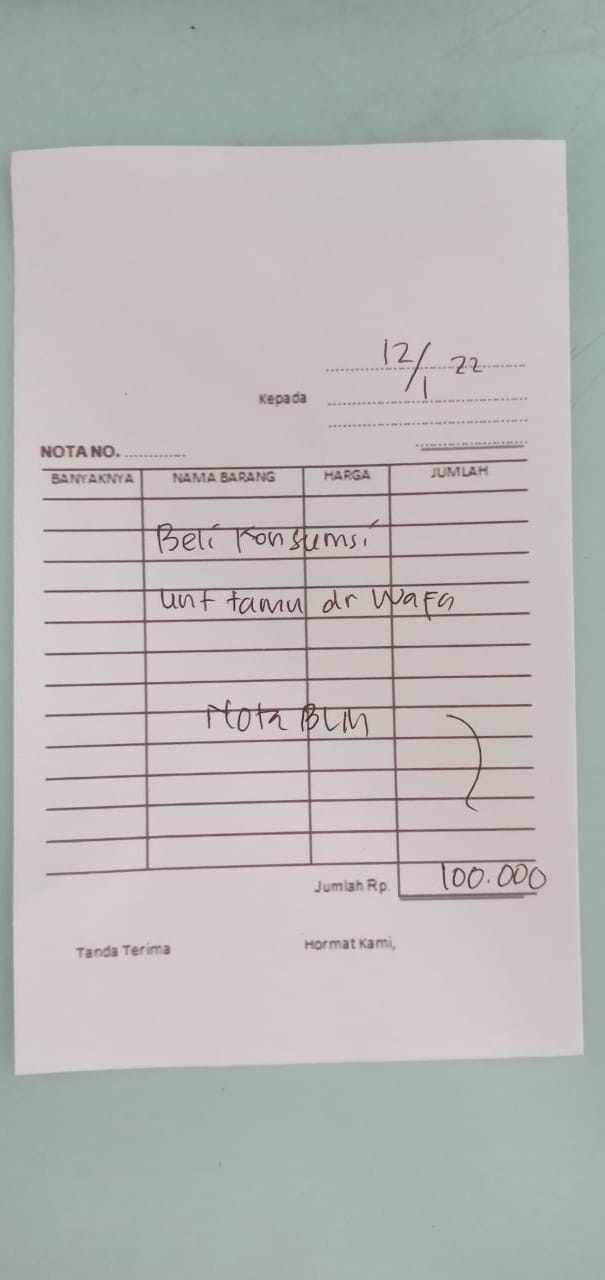 12/1 22
Kepada
NOTA NO.
BANYAKNYA NAMA BARANG HARGA JUMLAH
Beli Konsumsi
unt tamu dr Wafa
Nota BLM
Jumlah Rp. 100.000
Tanda Terima Hormat Kami,